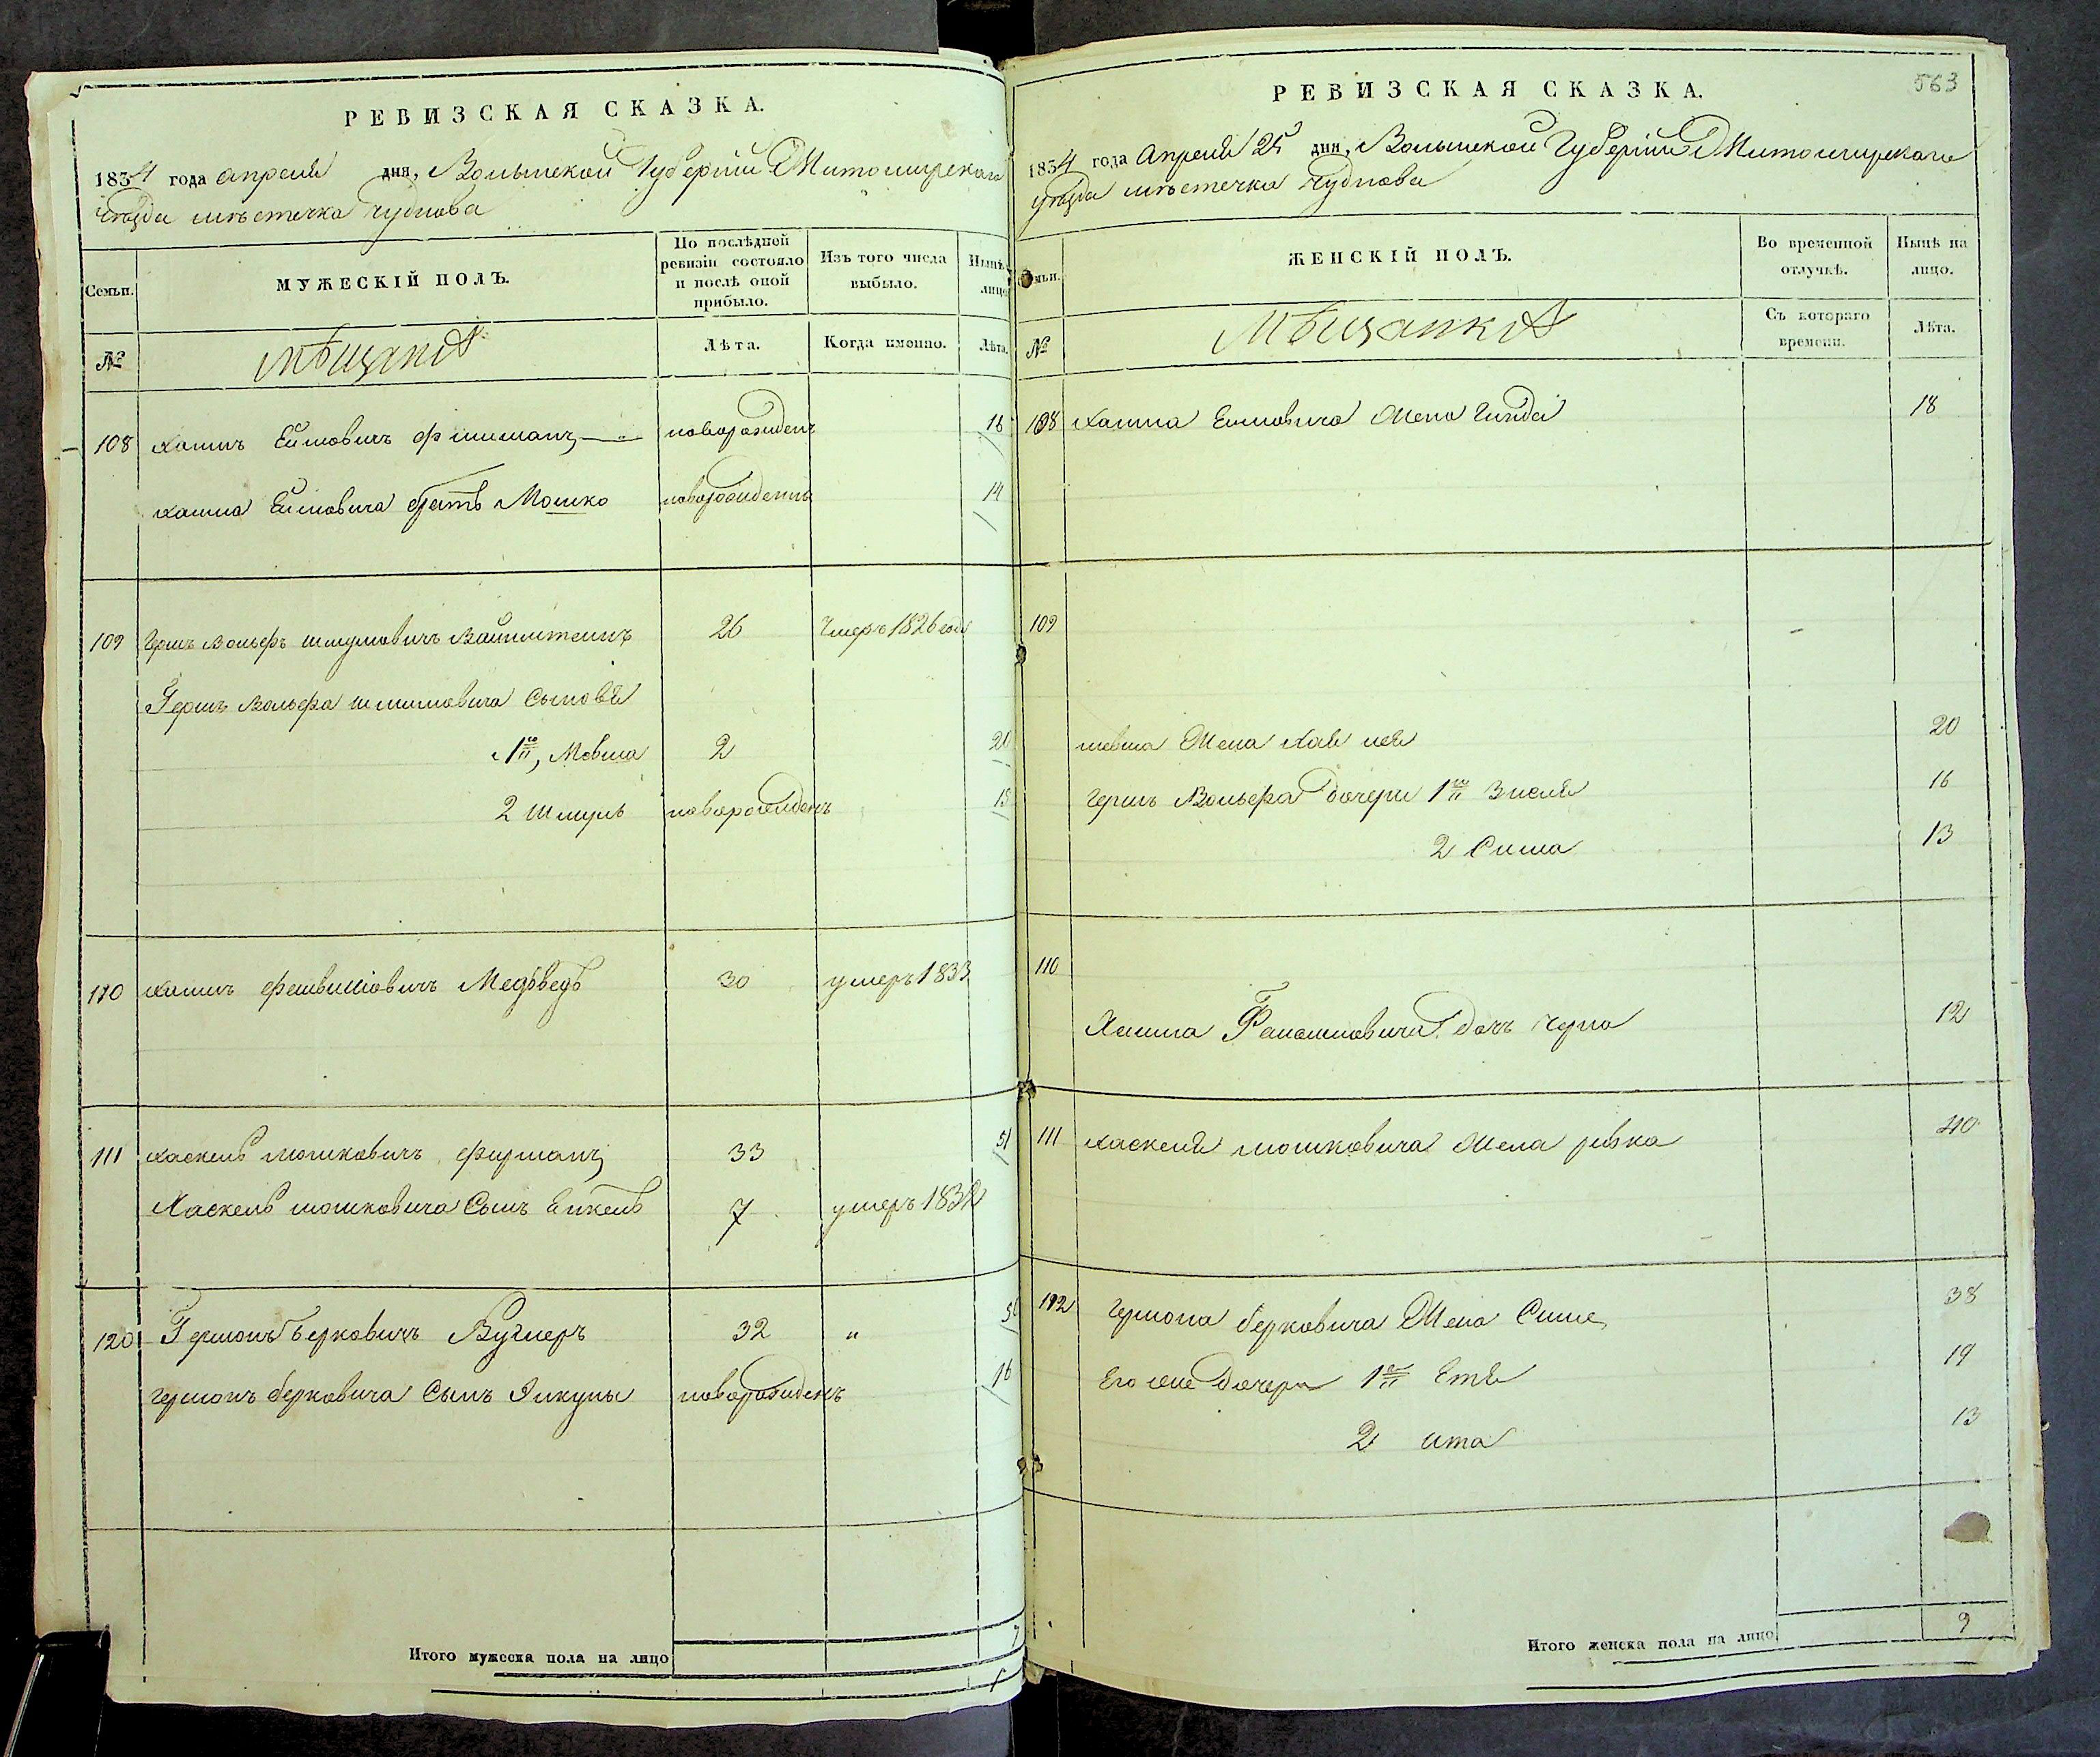 РЕВИЗСКАЯ СКАЗКА.
1834 года Апреля дня, Волынской Губернiи Житомирскаго
уѣзда мѣстечка Чуднова
Семьи.
МУЖЕСКIЙ ПОЛЪ.
По послѣдней ревизiи состояло и послѣ оной прибыло.
Изъ того числа выбыло.
Нынѣ лицо
№
мѣщанѣ
Лѣта.
Когда именно.
Лѣта.
108 Хаимъ Еймовичъ Фишманъ новорожденъ 18
Хаима Еймовича братъ Мошко новорожденъ 14
109 Гершъ Вольфъ Шмулиовичъ Вайнштеинъ 26 Умеръ 1826 года
Гершъ Вольфа Шмулиовича Сыновья
1й, Мовша 2 20
2 Шмуль новорожденъ 15
110 Хаимъ Фаивишiовичъ Медвѣдь 30 умеръ 1833
111 Хаскель Мошковичъ Фурманъ 33 51
Хаскель Мошковича Сынъ Янкель 7 умеръ 1832
120 Гершонъ Берковичъ 32 „ 50
Гершонъ Берковича Сынъ новорожденъ 16
Итого мужеска пола на лицо 7
563
РЕВИЗСКАЯ СКАЗКА.
1834 года Апреля 25 дня, Волынской Губернiи Житомирскаго
уѣзда мѣстечка Чуднова
Семьи.
ЖЕНСКIЙ ПОЛЪ.
Во временной отлучкѣ.
Нынѣ на лицо.
№
Мѣщанкѣ
Съ котораго времени.
Лѣта.
108 Хаима Еимовича Жена Гинда 18
109
Мовша Жена 20
Гершъ Вольфа дочери 1я Зисля 16
2 Сима 13
110
Хаима дочь Чурна 12
111 Хаскеля Мошковича Жена Ривка 40
112 Гершона Берковича Жена Симе 38
Его же дочери 1я Етя 19
2 Ита 13
Итого женска пола на лицо 9